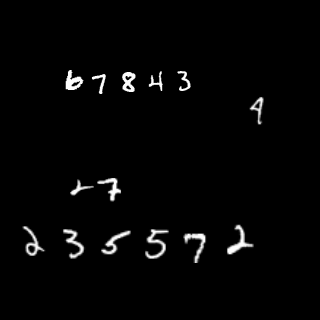 67843
4
27
235572